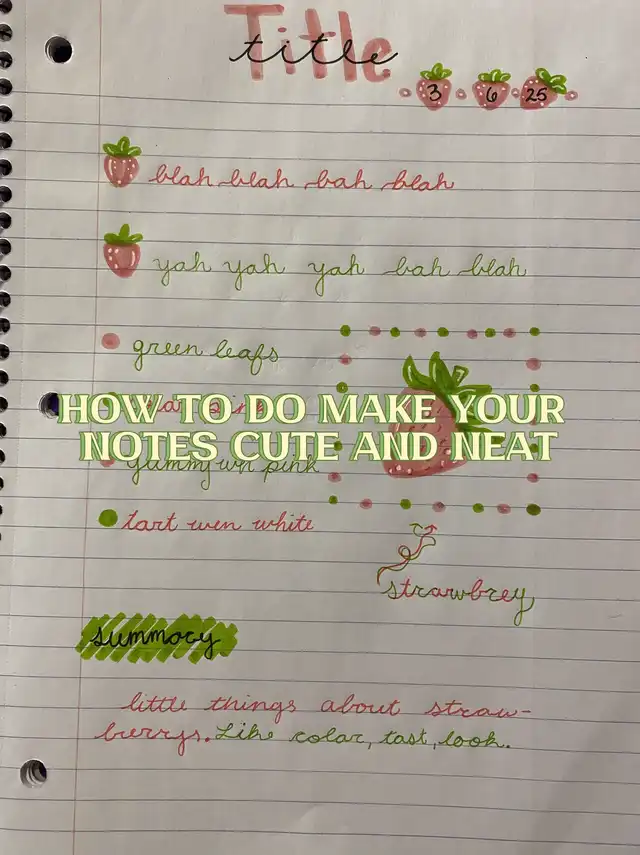 Title
title
3 6 25
blah blah bah blah
yah yah yah bah blah
green leafs
HOW TO DO MAKE YOUR
NOTES CUTE AND NEAT
yummy wn pink
tart wen white
strawbrey
summory
little things about straw-
berrys. Like colar, tast, look.